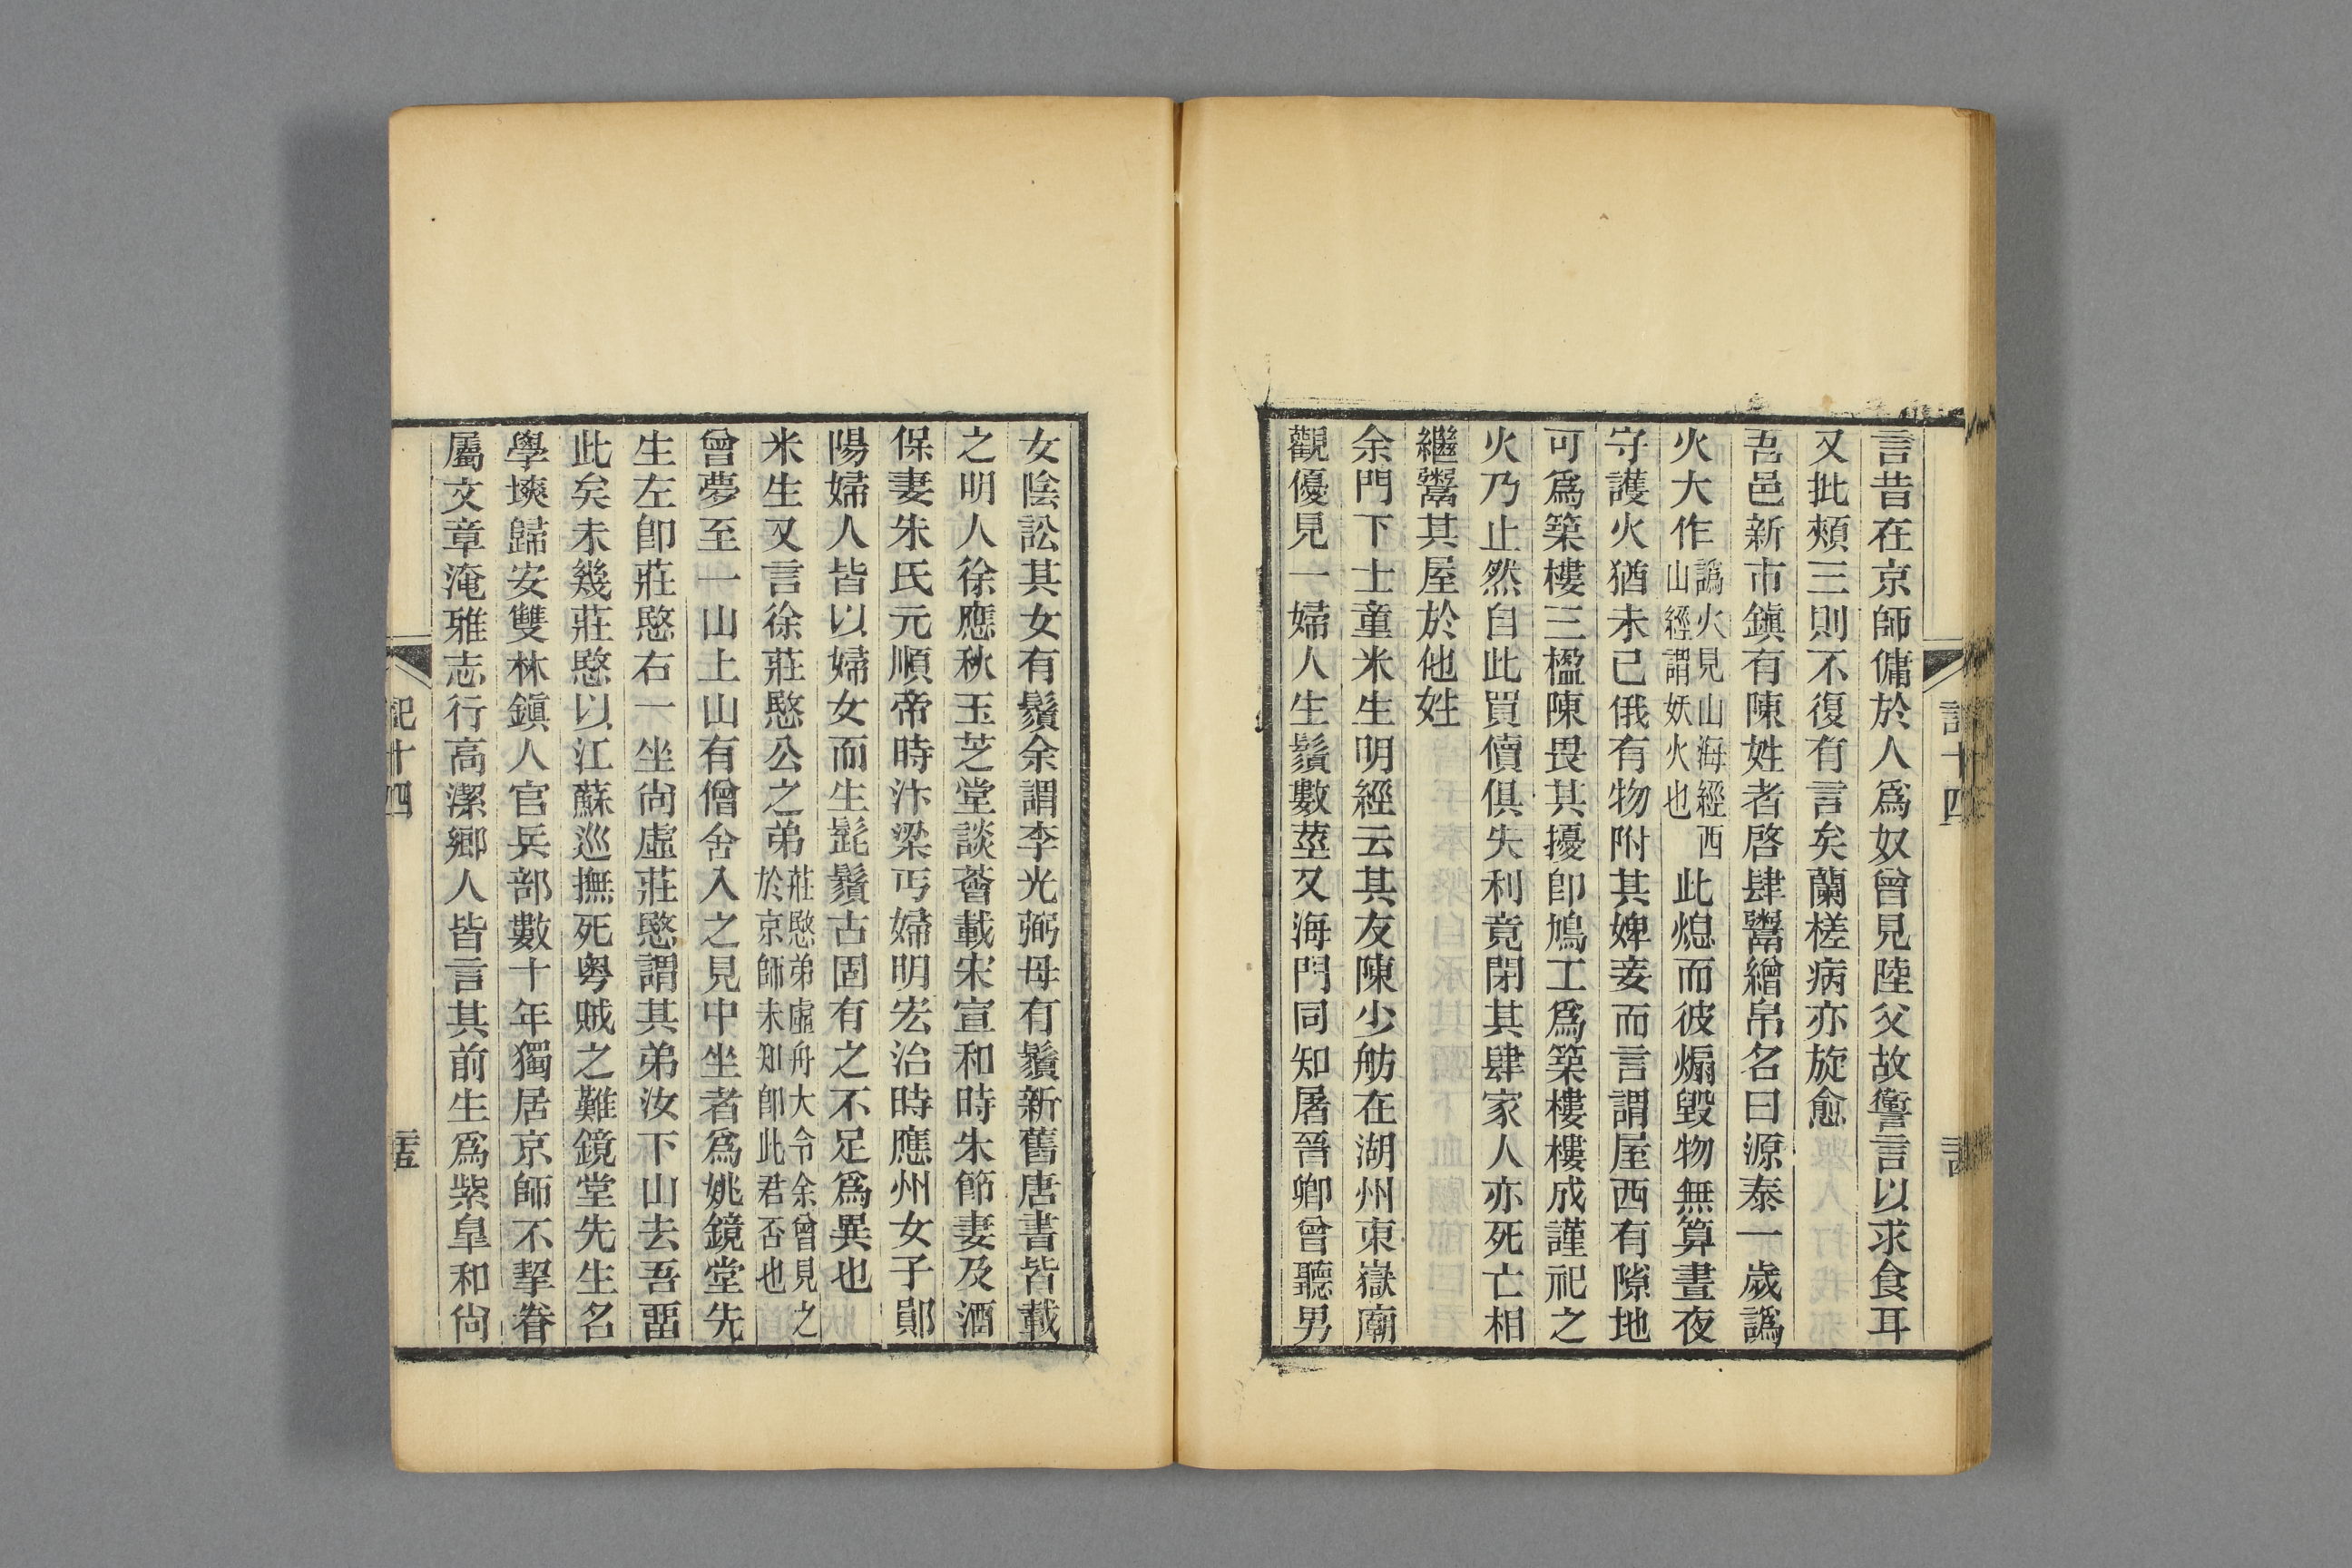 言昔在京師傭於人爲奴曾見陸父故讆言以求食耳
又批頰三則不復有言矣蘭槎病亦旋愈
吾邑新市鎭有陳姓者啓肆鬻繒帛名曰源泰一歲譌
火大作譌火見山海經西山經謂妖火也此熄而彼煽毀物無算晝夜
守護火猶未已俄有物附其婢妾而言謂屋西有隙地
可爲築樓三楹陳畏其擾卽鳩工爲築樓樓成謹祀之
火乃止然自此買儥俱失利竟閉其肆家人亦死亡相
繼鬻其屋於他姓
余門下士童米生明經云其友陳少舫在湖州東嶽廟
觀優見一婦人生鬚數莖又海門同知屠晉卿曾聽男
女陰訟其女有鬚余謂李光弼母有鬚新舊唐書皆載
之明人徐應秋玉芝堂談薈載宋宣和時朱節妻及酒
保妻朱氏元順帝時汴梁丐婦明宏治時應州女子鄖
陽婦人皆以婦女而生髭鬚古固有之不足爲異也
米生又言徐莊愍公之弟莊愍弟虛舟大令余曾見之於京師未知卽此君否也
曾夢至一山上山有僧舍入之見中坐者爲姚鏡堂先
生左卽莊愍右一坐尙虛莊愍謂其弟汝下山去吾畱
此矣未幾莊愍以江蘇巡撫死粤賊之難鏡堂先生名
學塽歸安雙林鎭人官兵部數十年獨居京師不挈眷
屬文章淹雅志行高潔鄉人皆言其前生爲紫皐和尙
記十四